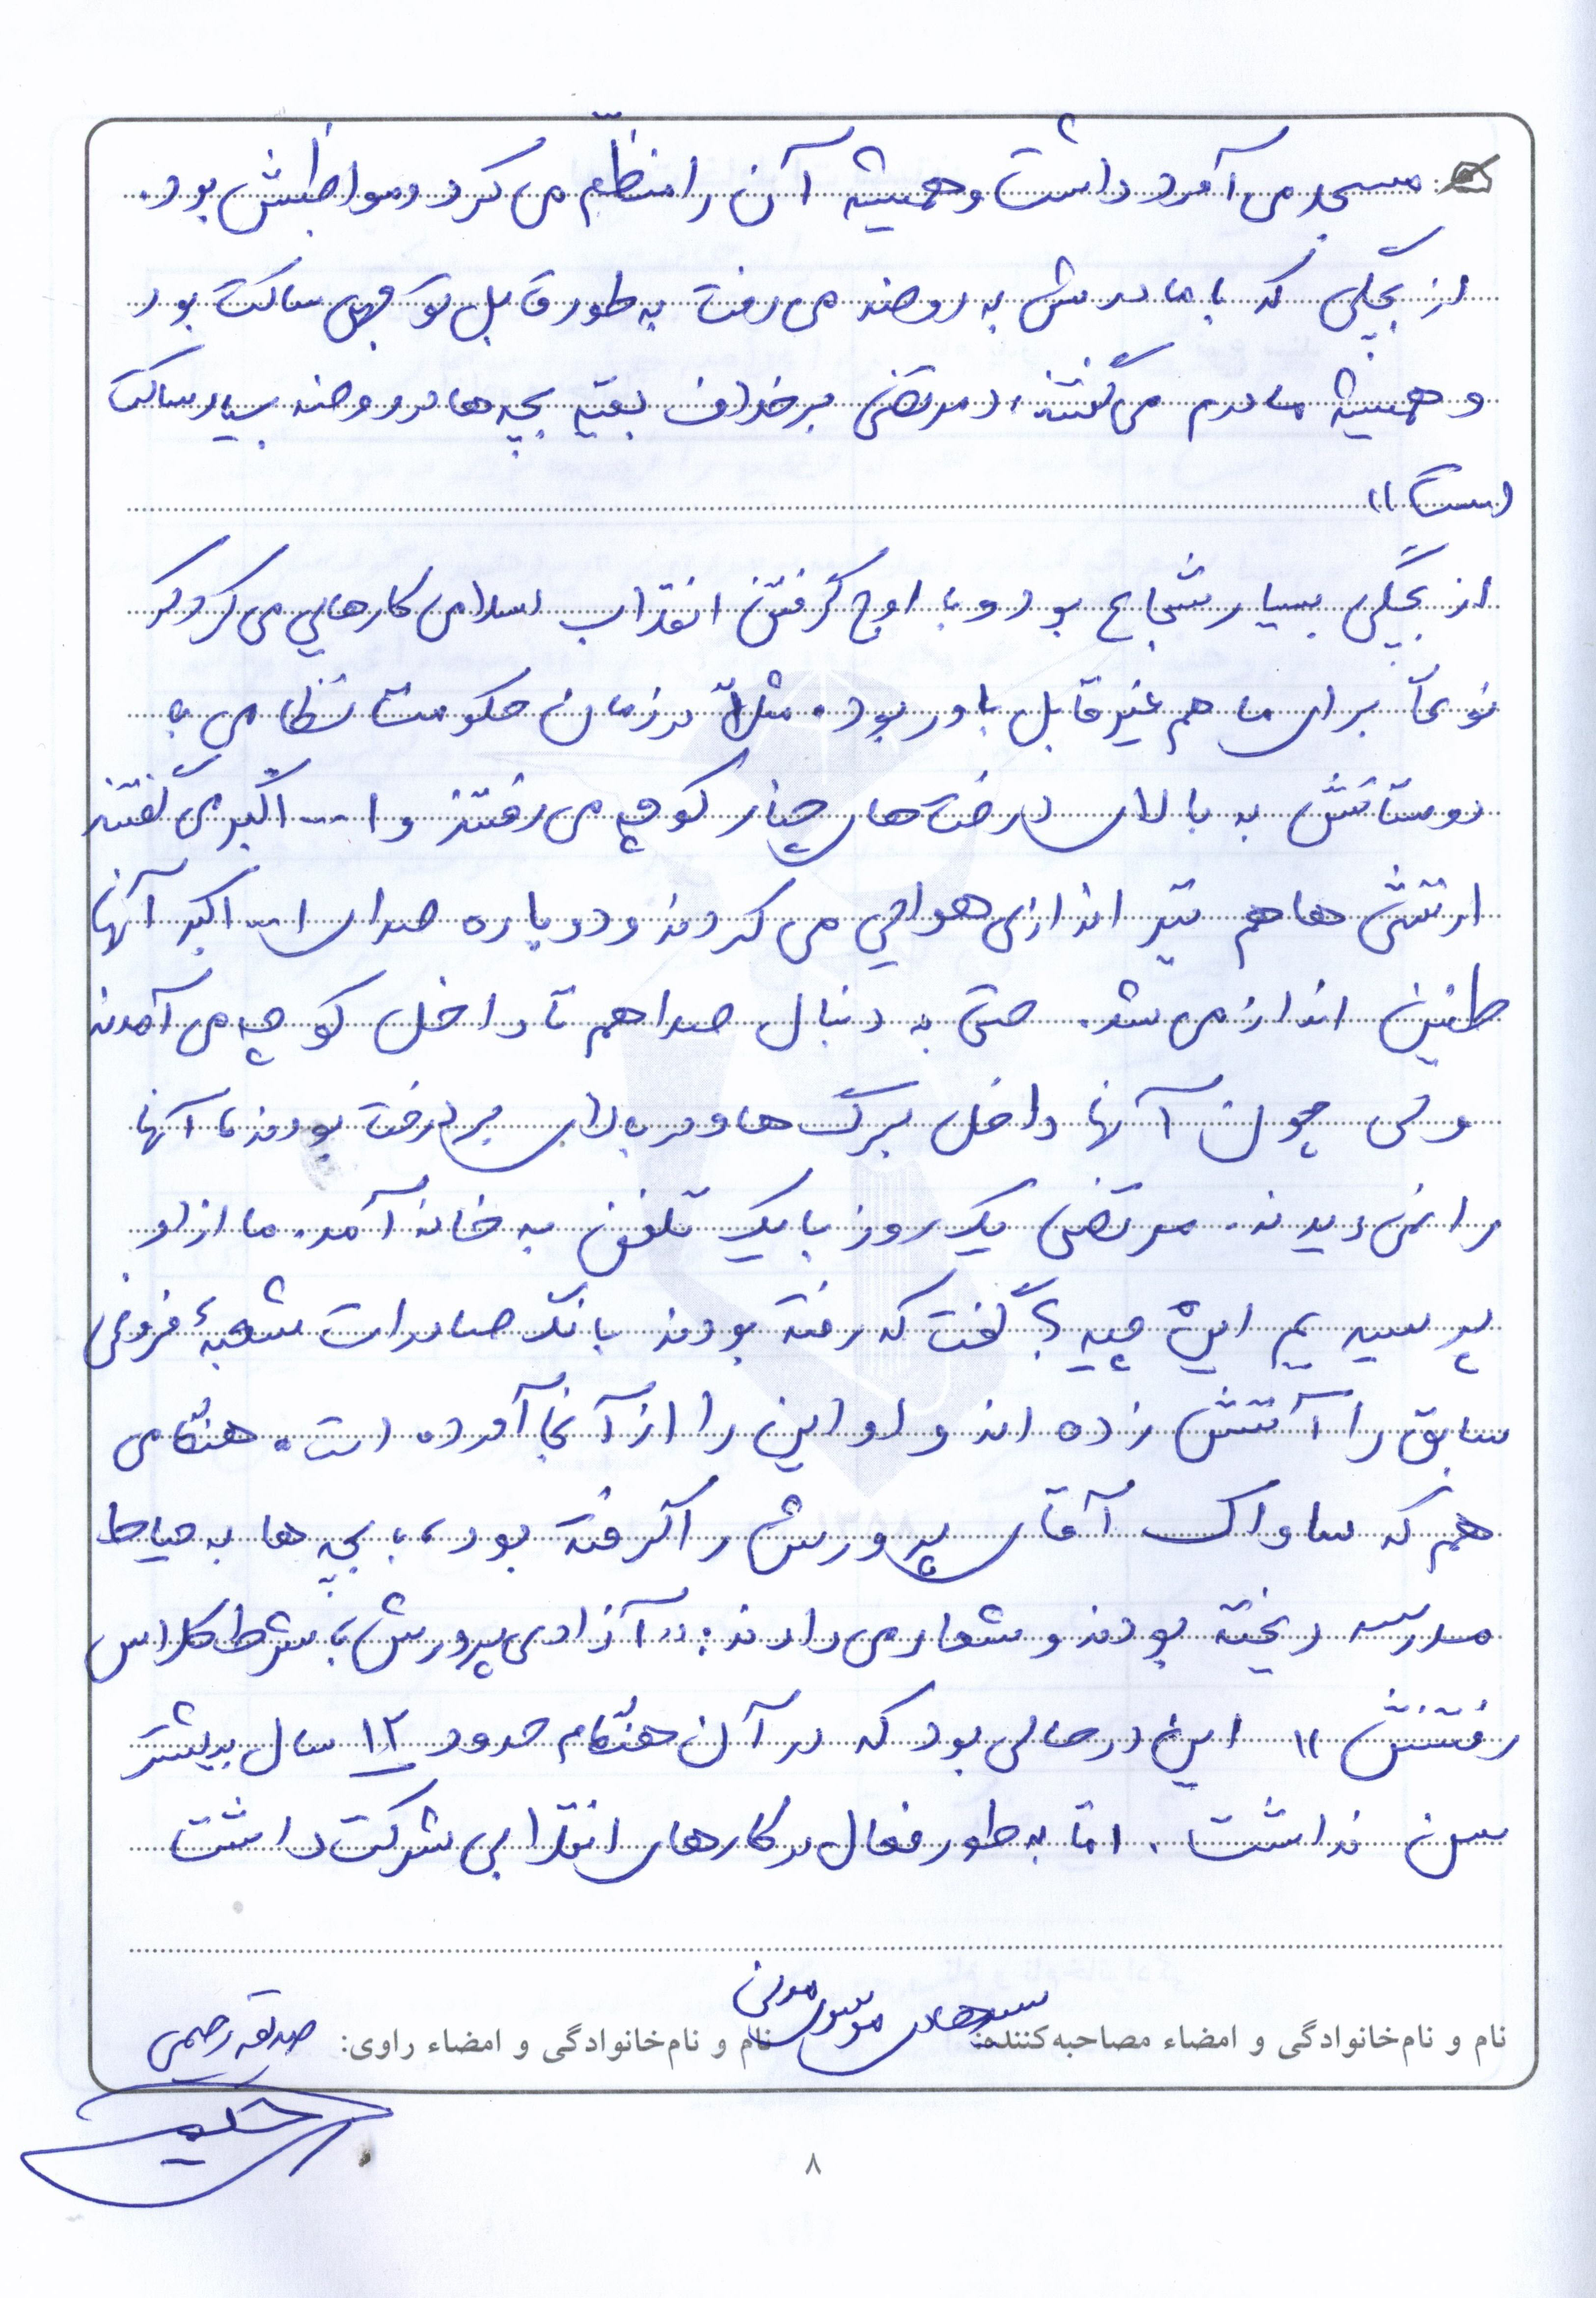 مسجد می آمد داشت و همیشه آن را منظّم می کرد و مواظبش بود.
از بچگی که با مادرش به روضه می رفت به طور قابل توجهی ساکت بود
و همیشه مادرم می گفتند: «مرتضی برخلاف بقیه بچه ها در روضه بسیار ساکت
است»
از بچگی بسیار شجاع بود و با اوج گرفتن انقلاب اسلامی کارهایی می کرد که
نوعاً برای ما هم غیر قابل باور بود. مثلاً در زمان حکومت نظامی با
دوستانش به بالای درخت های چنار کوچه می رفتند و ا... اکبر می گفتند
ارتشی ها هم تیر اندازی هوایی می کردند و دوباره صدای ا... اکبر آنها
طنین انداز می شد. حتی به دنبال صدا هم تا داخل کوچه می آمدند
ولی چون آنها داخل برگ ها و در بالای درخت بودند، آنها
را نمی دیدند. مرتضی یک روز با یک تلفن به خانه آمد. ما از او
پرسیدیم این چیه؟ گفت که رفته بودند بانک صادرات شعبۀ فروغی
سابق را آتش زده اند و او این را از آنجا آورده است. هنگامی
هم که ساواک آقای پرورش را گرفته بود، با بچه ها به حیاط
مدرسه ریخته بودند و شعار می دادند: «آزادی پرورش، شرط کلاس
رفتنش» این در حالی بود که در آن هنگام حدود ۱۲ سال بیشتر
سن نداشت. امّا به طور فعال در کارهای انقلابی شرکت داشت
نام و نام‌خانوادگی و امضاء مصاحبه‌کننده: موسوی مدنی نام و نام‌خانوادگی و امضاء راوی: صدیقه رحیمی
۸